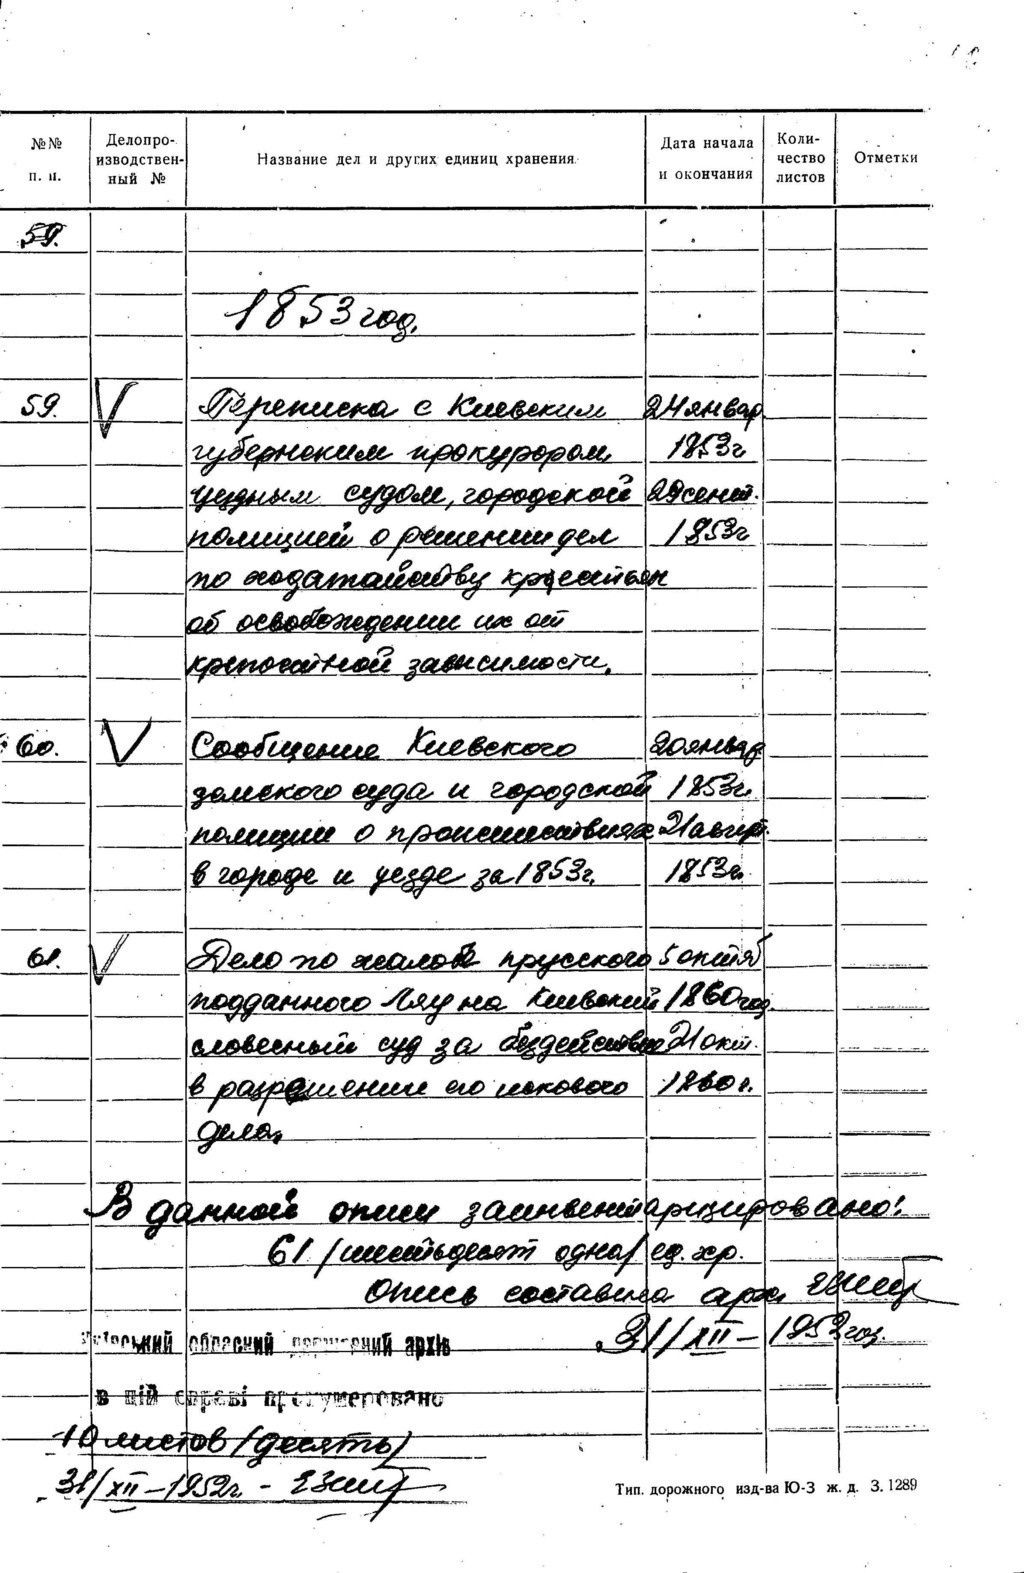 10
№№ п. п. Делопро-изводствен-ный № Название дел и других единиц хранения Дата начала и окончания Коли-чество листов Отметки
59.
1853 год.
59. V Переписка с Киевским 24 январ
губернским прокурором, 1853г
уездным судом, городской 29 сент.
полицией о решении дел 1853г
по ходатайству крестьян
об освобождении их от
крепостной зависимости.
60. V Сообщение Киевского 20 январ
земского суда и городской 1853г.
полиции о происшествиях 21 август.
в городе и уезде за 1853г. 1853г.
61. V Дело по жалобе прусского 5 октяб
подданного Ляу на Киевский 1860 год
словесный суд за бездействие 21 окт.
в разрешении его искового 1860г.
дела.
В данной описи заинвентаризировано:
61 /шестьдесят одна/ ед. хр.
Опись составила арх.
31/XII – 1952 год.
Київський обласний державний архів
в цій справі пронумеровано
10 листов /десять/
31/XII – 1952г. -
Тип. дорожного изд-ва Ю-З ж. д. З. 1289